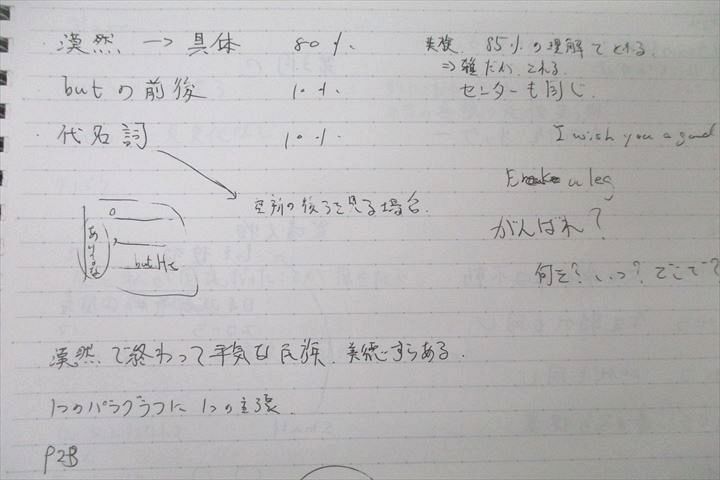 ・漠然 → 具体 80%
英検 85%の理解でとれる。
⇒雑だが、とれる。
センターも同じ。
butの前後 10%
・代名詞 10%
I wish you a good
Break a leg
空所の後ろを見る場合。
がんばれ?
but He
何を? いつ? どこで?
漠然で終わって平気な民族。美徳ですらある。
1つのパラグラフに1つの主張。
P2B